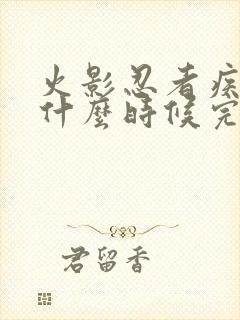 火影忍者疾
什麼時候完
君留香